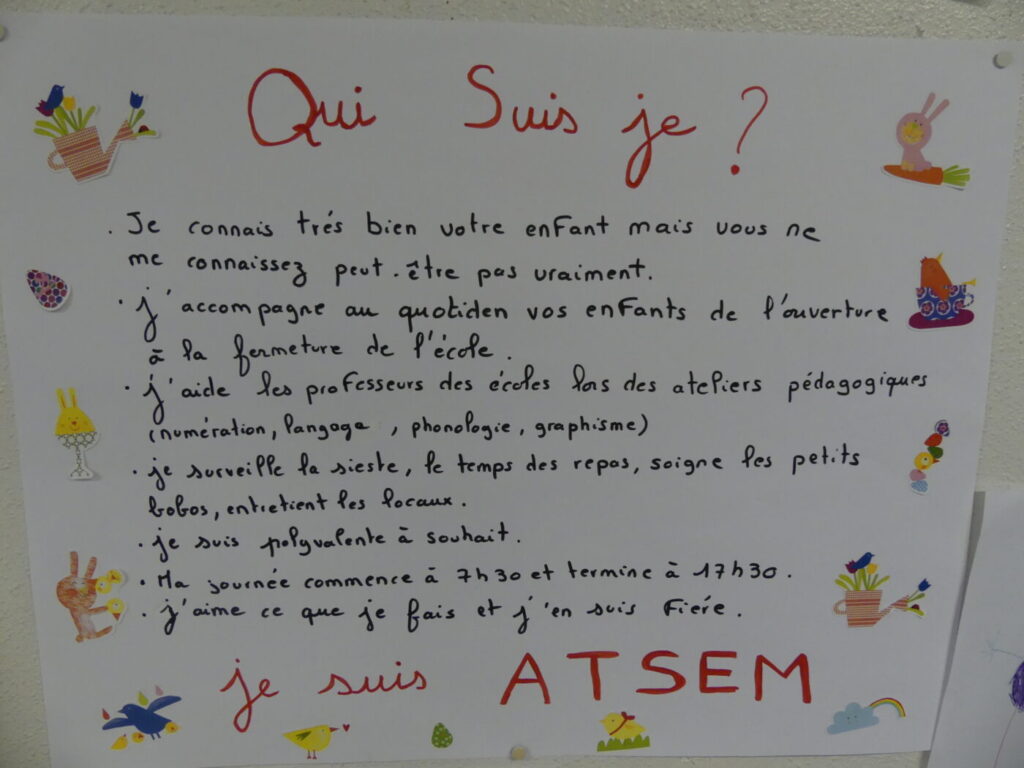 Qui Suis je ?
. Je connais trés bien votre enfant mais vous ne
me connaissez peut-être pas vraiment.
. j'accompagne au quotiden vos enfants de l'ouverture
à la fermeture de l'école.
. j'aide les professeurs des écoles lors des ateliers pédagogiques
(numération, langage , phonologie, graphisme)
. je surveille la sieste, le temps des repas, soigne les petits
bobos, entretient les locaux.
. je suis polyvalente à souhait.
. Ma journée commence à 7h30 et termine à 17h30.
. j'aime ce que je fais et j'en suis fiére.
je suis ATSEM